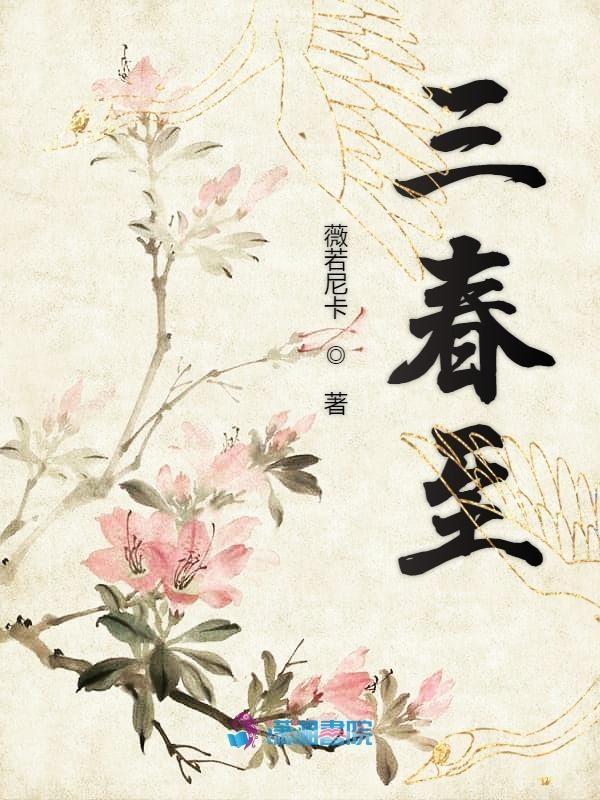 三春至
薇若尼卡 ◎ 著
潇湘書院